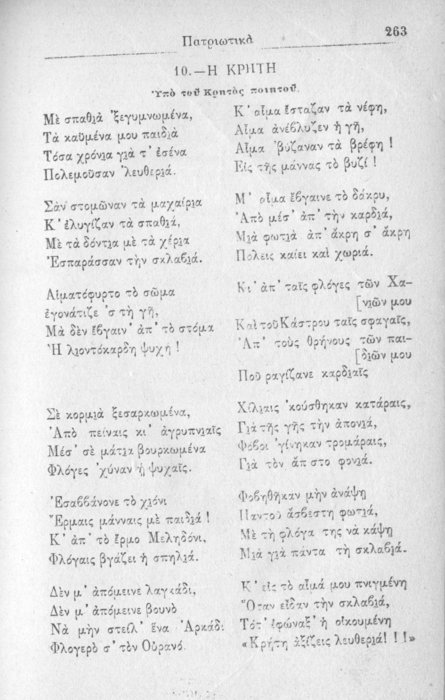 Πατριωτικὰ
263
10.—Η ΚΡΗΤΗ
Ὑπὸ τοῦ Κρητὸς ποιητοῦ.
Μὲ σπαθιὰ ᾽ξεγυμνωμένα,
Τὰ καϋμένα μου παιδιὰ
Τόσα χρόνια γιὰ τ᾽ ἐσένα
Πολεμοῦσαν Λευθεριά.
Σὰν στομῶναν τὰ μαχαίρια
Κ᾽ ἐλυγίζαν τὰ σπαθιὰ,
Μὲ τὰ δόντια μὲ τὰ χέρια
Ἐσπαράσσαν τὴν σκλαβιά.
Αἱματόφυρτο τὸ σῶμα
ἐγονάτιζε ᾽ς τὴ γῆ,
Μὰ δὲν ἔβγαιν᾽ ἀπ᾽ τὸ στόμα
Ἡ λιοντόκαρδη ψυχὴ!
Σὲ κορμιὰ ξεσαρκωμένα,
Ἀπὸ πείναις κι᾽ ἀγρυπνιαῖς
Μέσ᾽ σὲ μάτια βουρκωμένα
Φλόγες ᾽χύναν ᾑ ψυχαῖς.
Ἐσαββάνονε τὸ χιόνι
Ἔρμαις μάνναις μὲ παιδιά!
Κ᾽ ἀπ᾽ τὸ ἔρμο Μεληδόνι,
Φλόγαις βγάζει ἡ σπηλιά.
Δὲν μ᾽ ἀπόμεινε λαγκάδι,
Δὲν μ᾽ ἀπόμεινε βουνὸ
Νὰ μὴν στείλ᾽ ἕνα Ἀρκάδι
Φλογερὸ σ᾽ τὸν Οὐρανό.
Κ᾽ αἷμα ἔσταζαν τὰ νέφη,
Αἷμα ἀνέβλυζεν ἡ γῆ,
Αἷμα ᾽βύζαναν τὰ βρέφη!
Εἰς τῆς μάννας τὸ βυζί!
Μ᾽ αἷμα ἔβγαινε τὸ δάκρυ,
Ἀπὸ μέσ᾽ ἀπ᾽ τὴν καρδιά,
Μιὰ φωτιὰ ἀπ᾽ ἄκρη σ᾽ ἄκρη
Πόλεις καίει καὶ χωριά.
Κι᾽ ἀπ᾽ ταῖς φλόγες τῶν Χα-
[νιῶν μου
Καὶ τοῦ Κάστρου ταῖς σφαγαῖς,
Ἀπ᾽ τοὺς θρήνους τῶν παι-
[διῶν μου
Ποῦ ραγίζανε καρδιαῖς
Χίλιαις ᾽κούσθηκαν κατάραις,
Γιὰ τῆς γῆς τὴν ἀπονιά,
Φόβοι ᾽γίνηκαν τρομάραις,
Γιὰ τὸν ἄπιστο φονιά.
Φοβηθῆκαν μὴν ἀνάψῃ
Παντοῦ ἄσβεστη φωτιά,
Μὲ τὴ φλόγα της νὰ κάψῃ
Μιὰ γιὰ πάντα τὴ σκλαβιά.
Κ᾽ εἰς τὸ αἷμά μου πνιγμένη
Ὅταν εἶδαν τὴν σκλαβιά,
Τότ᾽ ἐφώναξ᾽ ἡ οἰκουμένη
«Κρήτη ἀξίζεις λευθεριά!!»